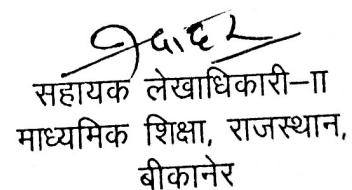 सहायक लेखाधिकारी-II
माध्यमिक शिक्षा, राजस्थान,
बीकानेर